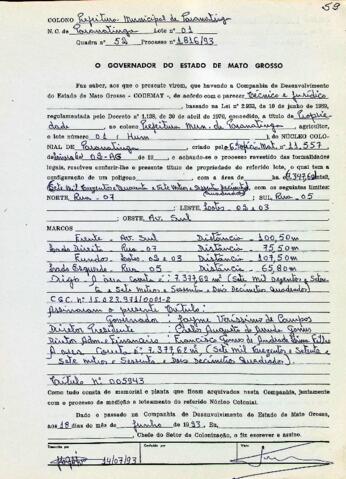 59
COLONO Prefeitura Municipal de Paranatinga
N.C. de Paranatinga Lote n.º 01
Quadra n.º 52 Processo n.º 1816/93
O GOVERNADOR DO ESTADO DE MATO GROSSO
Faz saber, aos que o presente virem, que havendo a Companhia de Desenvolvimento
do Estado de Mato Grosso - CODEMAT -, de acordo com o parecer técnico e jurídico
, baseado na Lei n.º 2.932, de 10 de junho de 1969,
regulamentada pelo Decreto n.º 1.138, de 30 de abril de 1970, concedido, a título de Proprie
dade, ao colono Prefeitura Mun. de Paranatinga, agricultor,
o lote n.º 01 (Hum) do NÚCLEO COLO-
NIAL DE Paranatinga, criado pelo Mat. 11.557
de 19 , e achando-se o processo revestido das formalidades
legais, resolveu conferir-lhe o presente título de propriedade do referido lote, o qual tem a
configuração de um polígono com a área de 7.377,62
com os seguintes limites:
NORTE, Rua - 07 ; SUL, Rua 05
; LESTE, Lotes 02 e 03
; OESTE, Av. Sul
MARCOS
Frente - Av. Sul Distância - 100,50m
Lado Direito - Rua - 07 Distância - 75,50m
Fundos - Lotes 02 e 03 Distância - 107,50m
Lado Esquerdo - Rua 05 Distância - 65,80m
Digo: A área correta é: 7.377,62 m² (Sete Mil Trezentos e Seten-
ta e Sete Metros e Sessenta e Dois Decímetros Quadrados)
C.G.C. Nº 15.023.971/0001-
Assinaram o presente título:
Governador - Jayme Veríssimo de Campos
Diretor Presidente - Augusto de Arruda Gomes
Diretor Adm. e Financeiro - Francisco Gomes de Andrade Lima Filho
A área correta é 7.377,62 m² (Sete Mil Trezentos e Setenta e
Sete metros e Sessenta e Dois Decímetros Quadrados).
Título Nº 005943
Como tudo consta de memorial e planta que ficam arquivados nesta Companhia, juntamente
com o processo de medição e loteamento do referido Núcleo Colonial.
Dado e passado na Companhia de Desenvolvimento do Estado de Mato Grosso,
aos 18 dias do mês de Junho de 1993. Eu,
Chefe do Setor de Colonização, o fiz escrever e assino.
14/07/93
Conferido por
Visto